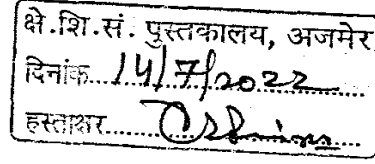 क्षे.शि.सं. पुस्तकालय, अजमेर
दिनांक....14/7/2022......
हस्ताक्षर......